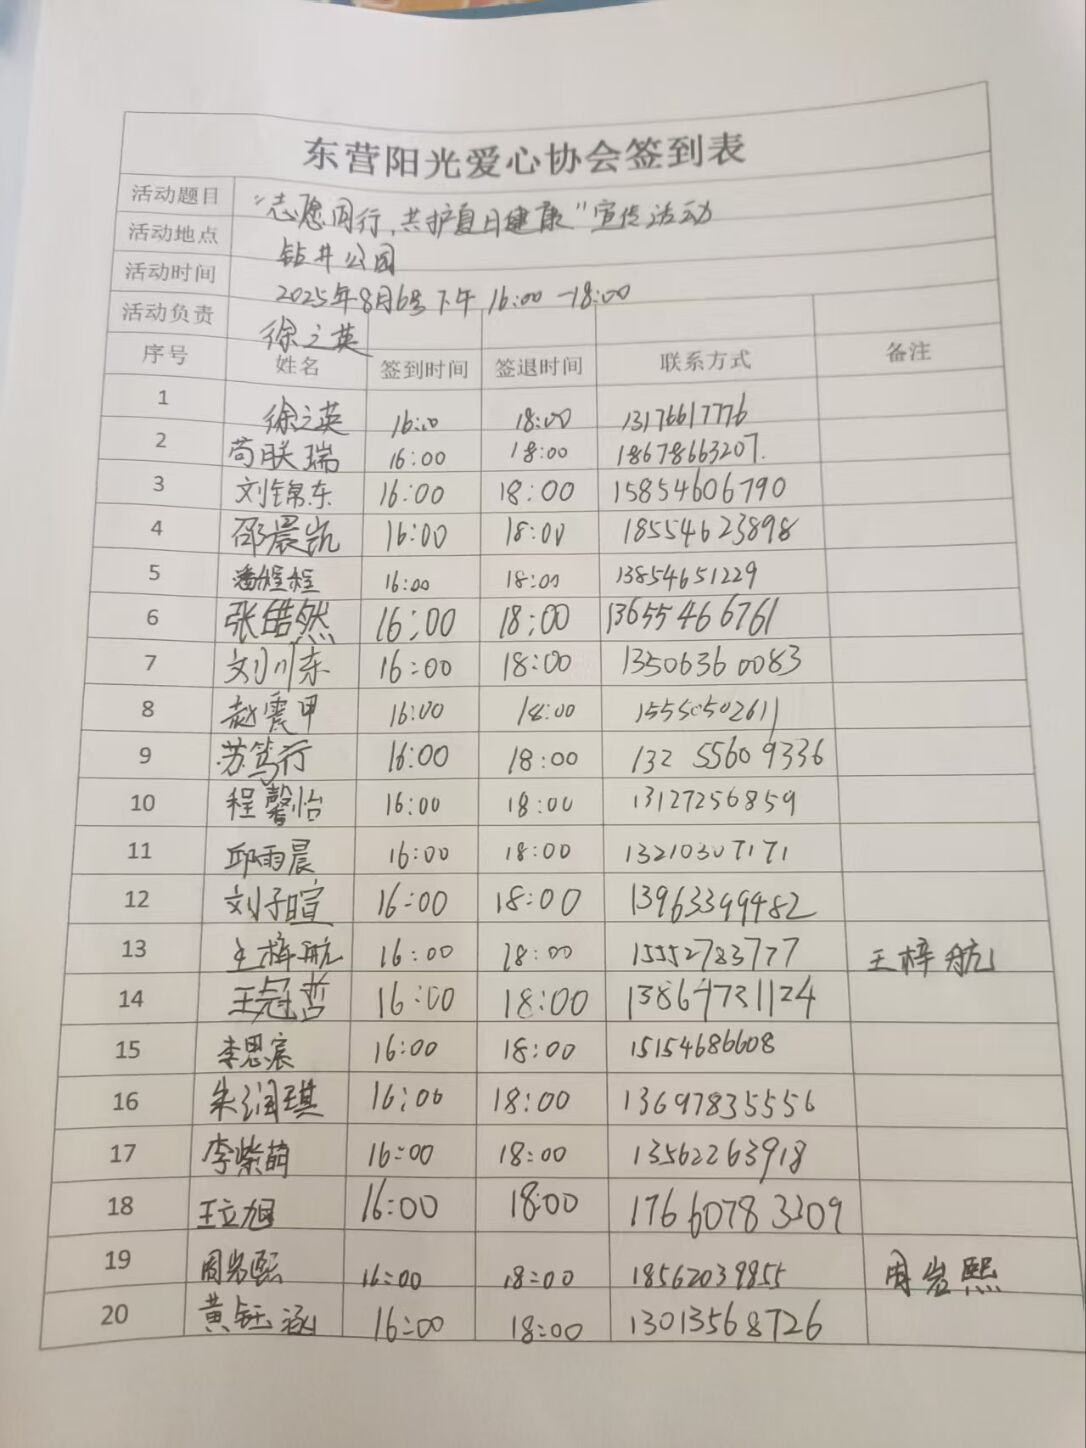 东营阳光爱心协会签到表
活动题目 “志愿同行,共护夏日健康”宣传活动
活动地点 钻井公园
活动时间 2025年8月6号下午 16:00-18:00
活动负责 徐之英
序号 姓名 签到时间 签退时间 联系方式 备注
1 徐之英 16:00 18:00 13176617776
2 苟联瑞 16:00 18:00 18678663207.
3 刘锦东 16:00 18:00 15854606790
4 邵晨凯 16:00 18:00 18554623898
5 潘程程 16:00 18:00 13854651229
6 张皓然 16:00 18:00 13655466761
7 刘川东 16:00 18:00 13506360083
8 赵震甲 16:00 18:00 15550502611
9 苏笃行 16:00 18:00 132 5560 9336
10 程馨怡 16:00 18:00 13127256859
11 邱雨晨 16:00 18:00 13210307171
12 刘子暄 16:00 18:00 13963399482
13 王梓航 16:00 18:00 15552783777 王梓航
14 王冠哲 16:00 18:00 13864731124
15 李思宸 16:00 18:00 15154686608
16 朱润琪 16:00 18:00 13697835556
17 李紫萌 16:00 18:00 13562263918
18 王立旭 16:00 18:00 17660783209
19 周岩熙 16:00 18:00 18562039855 周岩熙
20 黄钰涵 16:00 18:00 13013568726